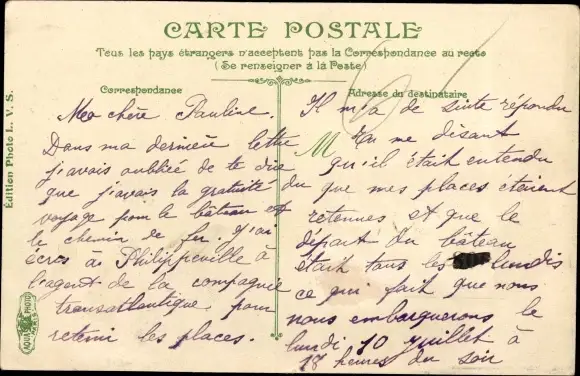 CARTE POSTALE
Tous les pays étrangers n'acceptent pas la Correspondance au recto
(Se renseigner à la Poste)
Correspondance
Ma chère Pauline.
Dans ma dernière lettre
j'avais oublié de te dire
que j'avais la gratuité du
voyage pour le bâteau et
le chemin de fer. J'ai
écris à Philippeville à
l'agent de la compagnie
transatlantique pour
retenir les places.
Adresse du destinataire
Il m'a de suite répondu
M
En me disant
qu'il était entendu
que mes places étaient
retenues et que le
départ du bâteau
était tous les lundis
ce qui fait que nous
nous embarquerons le
lundi 10 juillet à
18 heures du soir
Édition Photo L. V. S.
AQUA PHOTO
PARIS